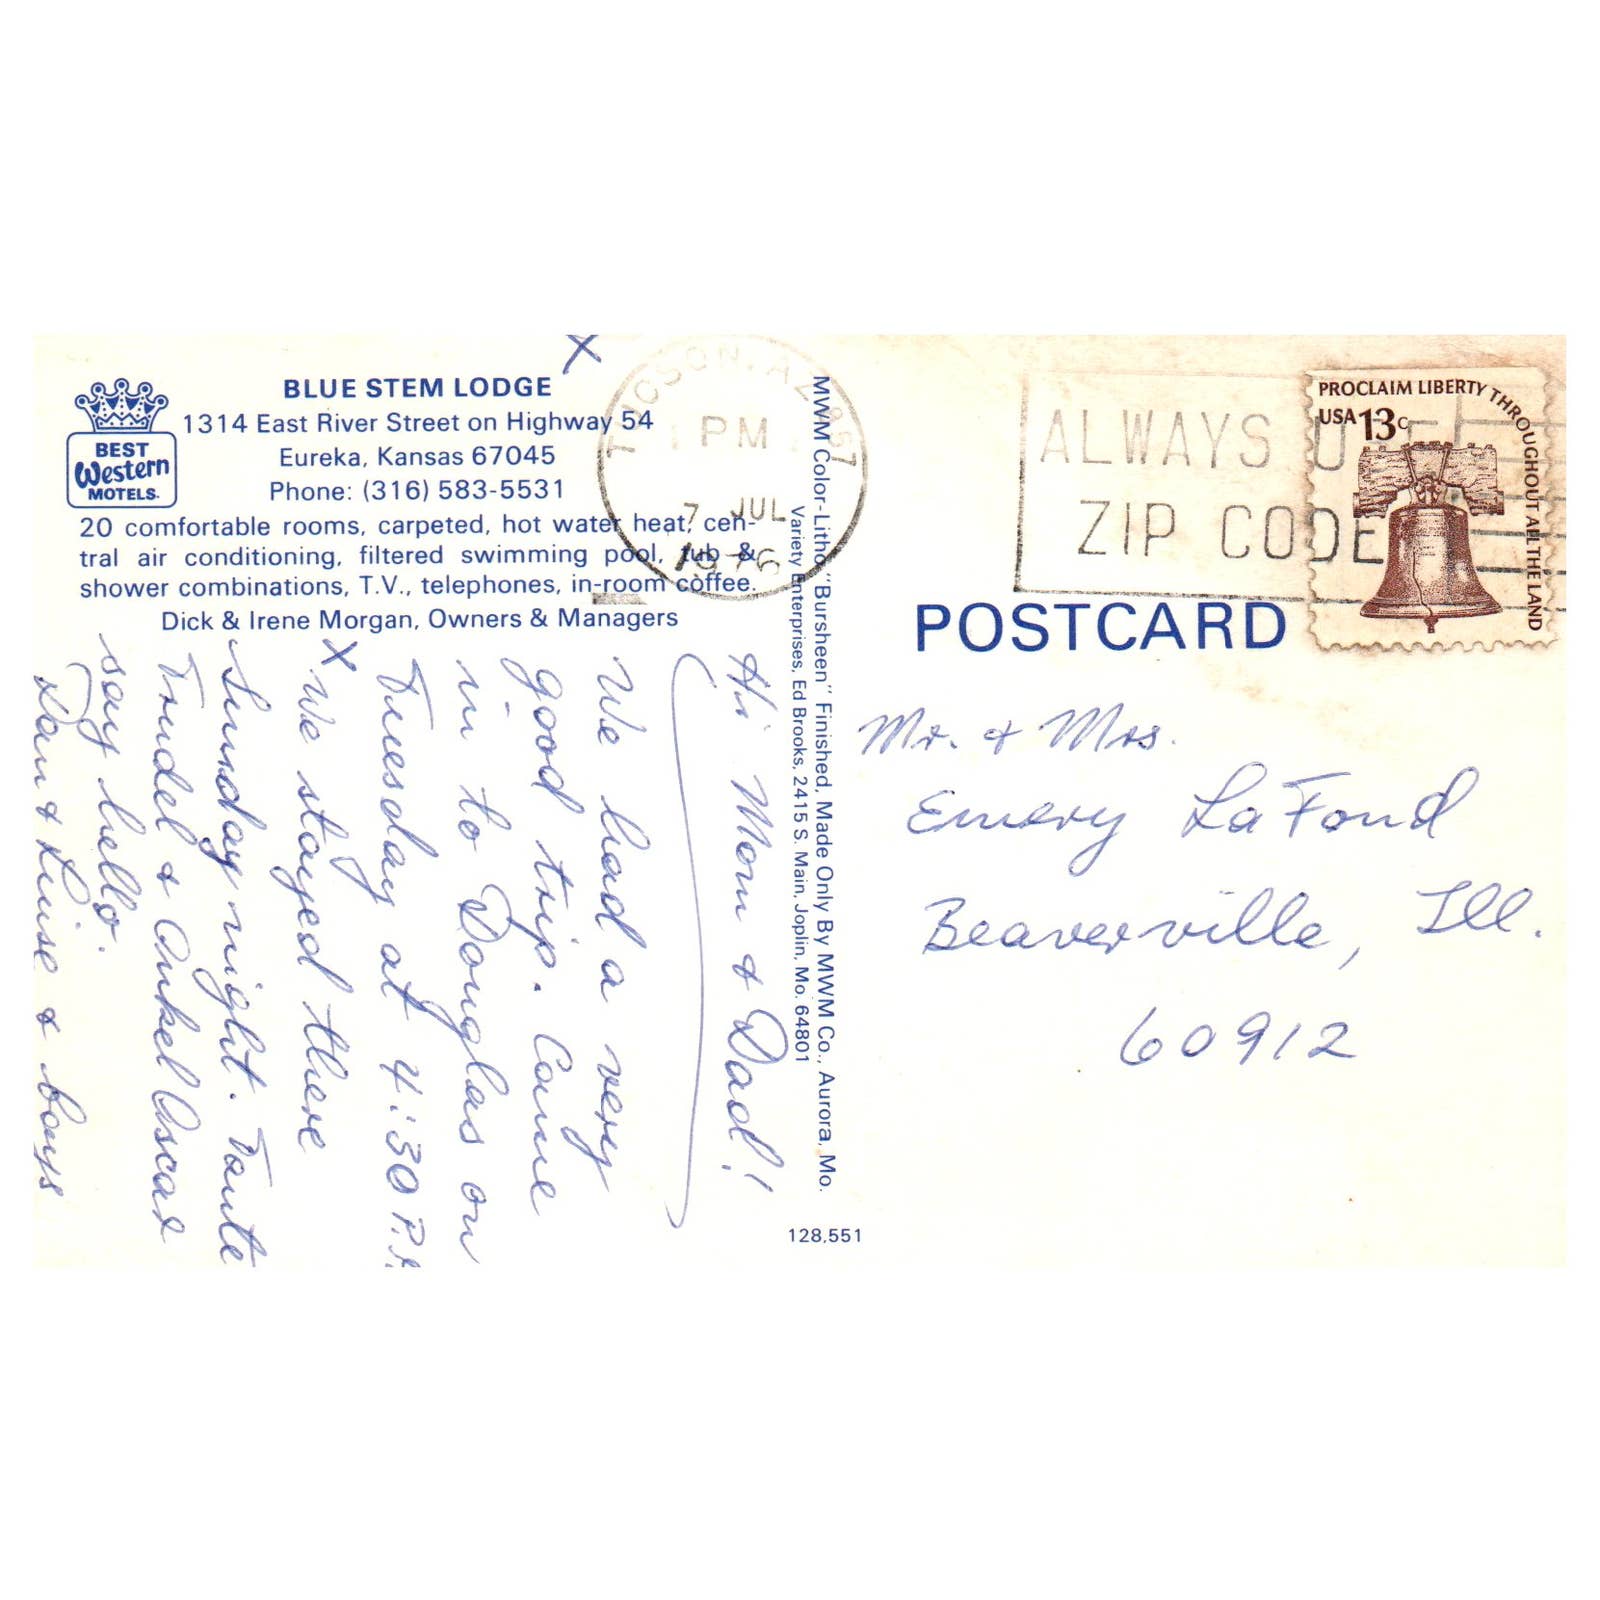 BLUE STEM LODGE
1314 East River Street on Highway 54
Eureka, Kansas 67045
Phone: (316) 583-5531
BEST
Western
MOTELS.
20 comfortable rooms, carpeted, hot water heat, cen-
tral air conditioning, filtered swimming pool, tub &
shower combinations, T.V., telephones, in-room coffee.
Dick & Irene Morgan, Owners & Managers
X
Hi Mom & Dad!
We had a very
good trip. Came
in to Douglas on
Tuesday at 4:30 P.
X
We stayed there
Sunday night. Tante
Trudel & Onkel Oscar
say hello.
Dan & Luise & boys
MWM Color-Litho "Bursheen" Finished, Made Only By MWM Co., Aurora, Mo.
Variety Enterprises, Ed Brooks, 2415 S. Main, Joplin, Mo. 64801
128,551
TUCSON, AZ 857
PM
7 JUL
1976
ALWAYS U
ZIP CODE
PROCLAIM LIBERTY THROUGHOUT ALL THE LAND
USA 13c
POSTCARD
Mr. & Mrs.
Emery LaFond
Beaverville, Ill.
60912